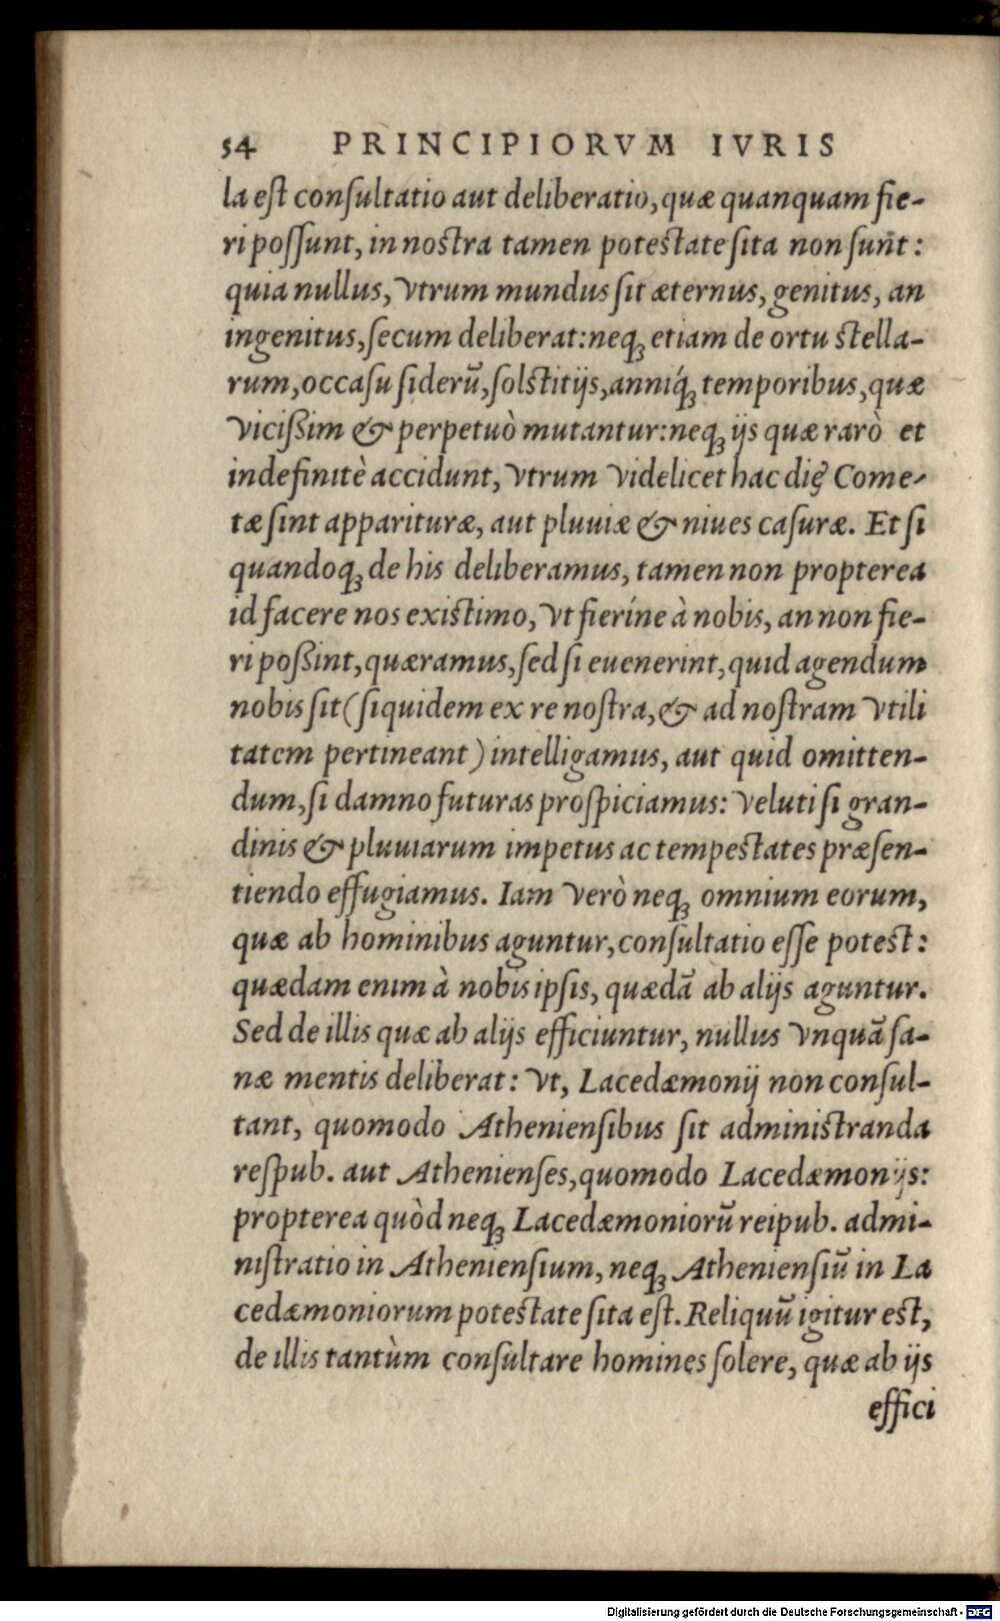 54 PRINCIPIORVM IVRIS
la est consultatio aut deliberatio, quæ quanquam fie-
ri possunt, in nostra tamen potestate sita non sunt:
quia nullus, vtrum mundus sit æternus, genitus, an
ingenitus, secum deliberat: neq; etiam de ortu stella-
rum, occasu siderū, solstitijs, anniq́; temporibus, quæ
vicißim & perpetuò mutantur: neq; ijs quæ rarò et
indefinitè accidunt, vtrum videlicet hac dię Come-
tæ sint appariturę, aut pluuiæ & niues casuræ. Et si
quandoq; de his deliberamus, tamen non propterea
id facere nos existimo, vt fieríne à nobis, an non fie-
ri poßint, quæramus, sed si euenerint, quid agendum
nobis sit (siquidem ex re nostra, & ad nostram vtili
tatem pertineant) intelligamus, aut quid omitten-
dum, si damno futuras prospiciamus: veluti si gran-
dinis & pluuiarum impetus ac tempestates præsen-
tiendo effugiamus. Iam verò neq; omnium eorum,
quæ ab hominibus aguntur, consultatio esse potest:
quædam enim à nobis ipsis, quædā ab alijs aguntur.
Sed de illis quæ ab alijs efficiuntur, nullus vnquā sa-
næ mentis deliberat: vt, Lacedæmonij non consul-
tant, quomodo Atheniensibus sit administranda
respub. aut Athenienses, quomodo Lacedæmonijs:
propterea quòd neq; Lacedæmoniorū reipub. admi-
nistratio in Atheniensium, neq; Atheniensiū in La
cedæmoniorum potestate sita est. Reliquū igitur est,
de illis tantùm consultare homines solere, quæ ab ijs
effici
Digitalisierung gefördert durch die Deutsche Forschungsgemeinschaft - DFG